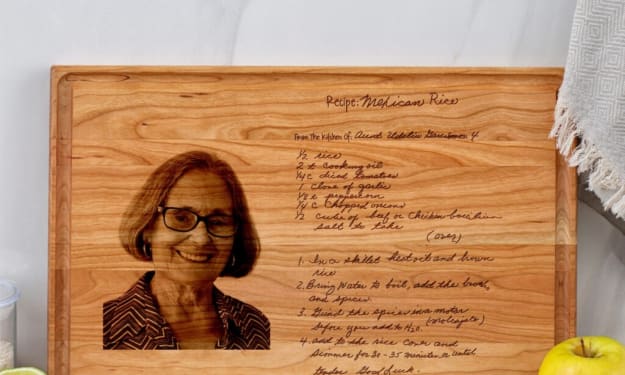 Recipe: Mexican Rice
From the kitchen of: Aunt
1/2 rice
2 t cooking oil
1/4 c diced tomatoes
1 clove of garlic
1/8 t peppercorn
1/4 c chopped onions
1/2 cube of beef or chicken bouillon
salt to take
(over)
1. In a skillet heat oil and brown
rice
2. Bring water to boil, add the
and spice.
3. Grind the spices in a motar
before you add to H2O. (molcajete)
4. add to the rice cover and
simmer for 30-35 minutes or until
tender Good luck.